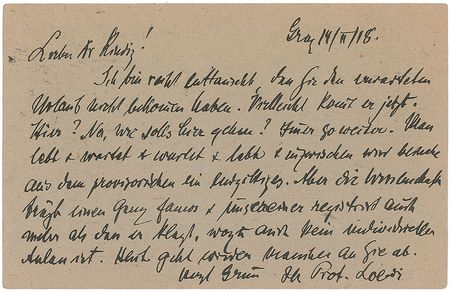 Graz 14/II/18.
Lieber Dr
Ich bin recht enttäuscht, dass Sie den erwarteten
Urlaub nicht bekommen haben. Vielleicht kommt er jetzt.
Hier? Na, wie soll's hier gehen? Immer so weiter. Man
lebt & wartet & wartet & lebt & inzwischen wird beinahe
aus dem provisorischen ein Endgültiges. Aber die Wissenschaft
trägt einen ganz famos & unsereiner registriert auch
mehr als dass er klagt, wozu auch kein individueller
Anlass ist. Heute geht wieder an Sie ab.
Ihr Prof. Loewi